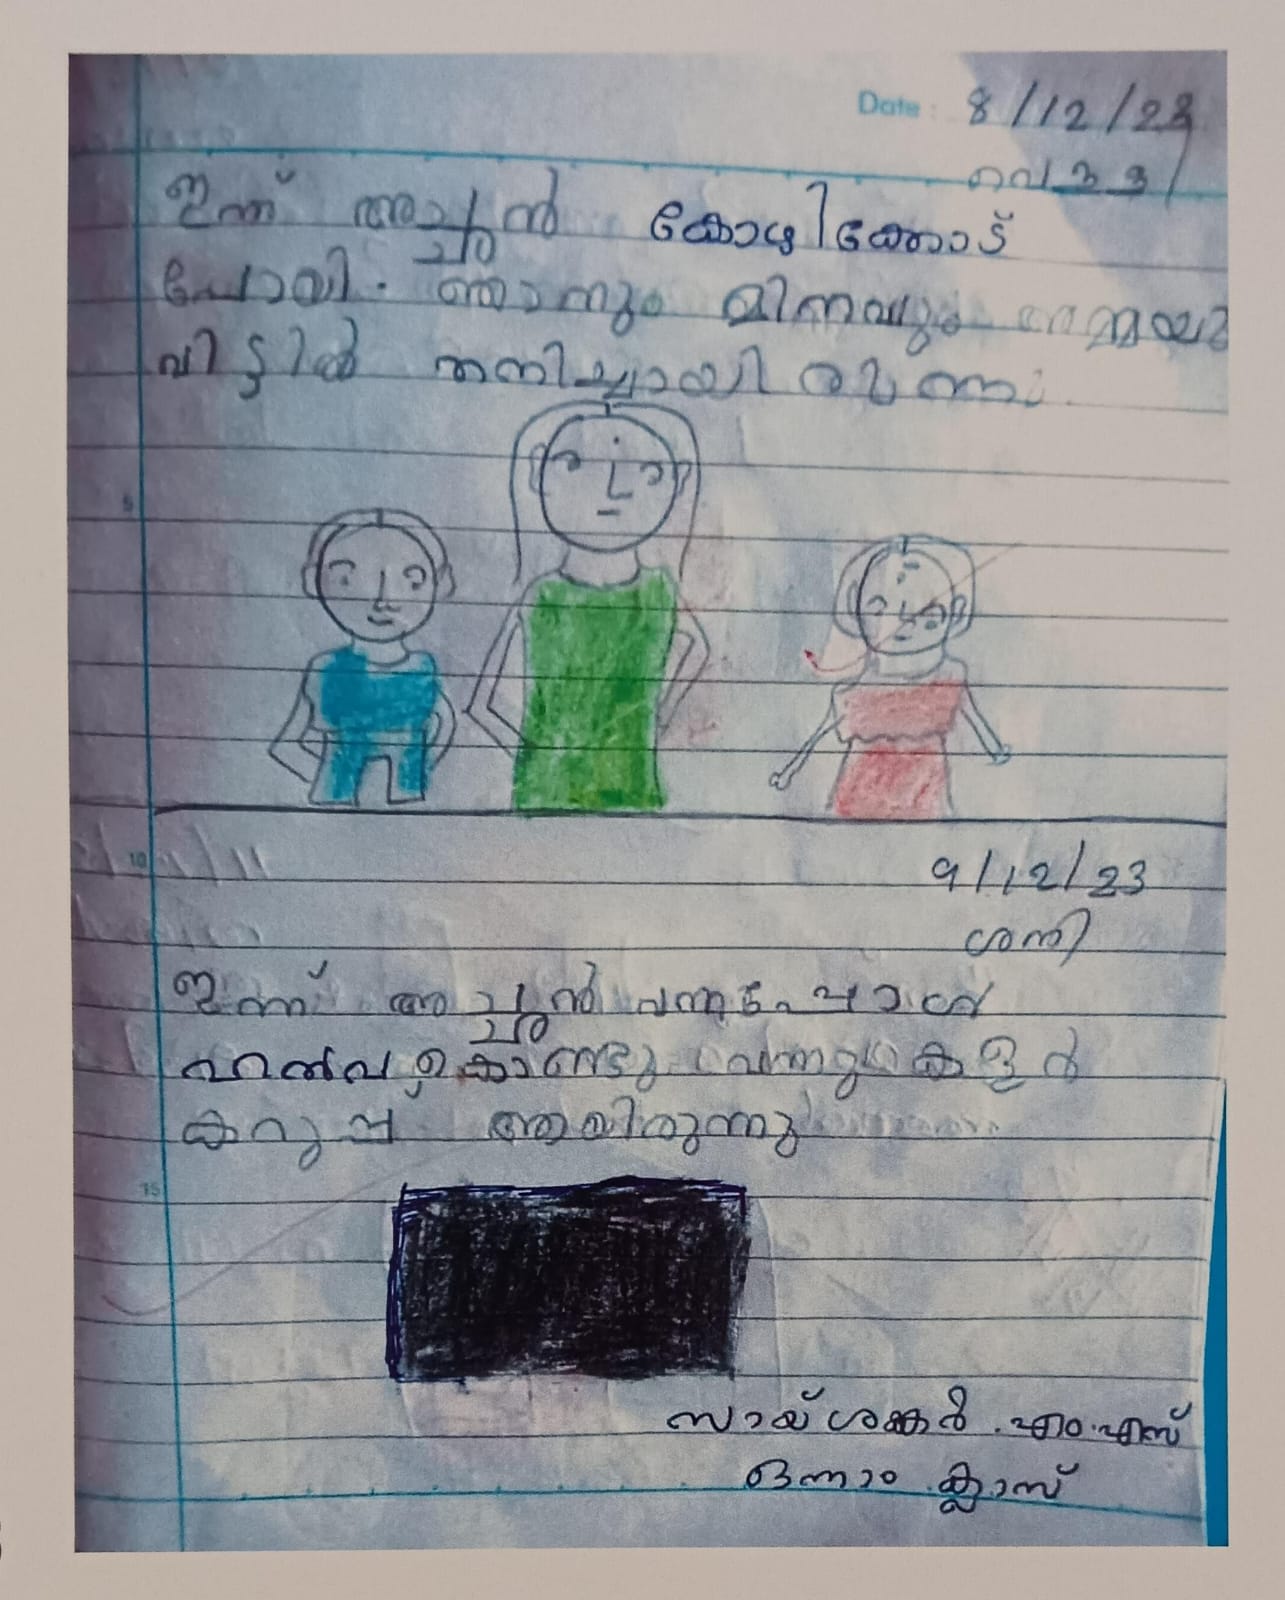 Date : 8/12/23
ഇന്ന് അച്ഛൻ കോഴിക്കോട്
പോയി. ഞാനും മിന്നവും അമ്മയും
വീട്ടിൽ തനിച്ചായിരുന്നു.
5
10
9/12/23
ശനി
ഇന്ന് അച്ഛൻ വന്നപ്പോൾ
ഹൽവ കൊണ്ടു വന്നു കളർ
കറുപ്പ് ആയിരുന്നു
15
സായ്ശങ്കർ. എം. എസ്
ഒന്നാം ക്ലാസ്